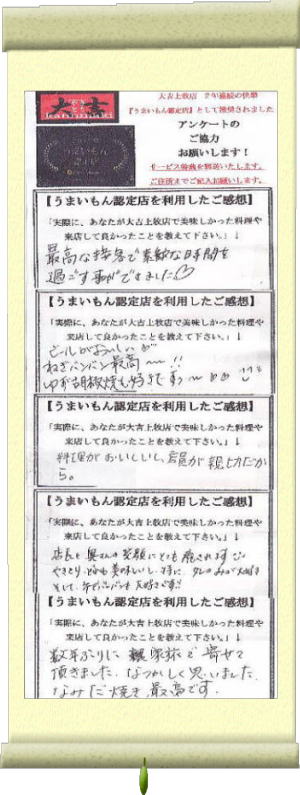 大吉上牧店 2年連続の快挙
大吉
kanmaki
【うまいもん認定店】として推奨されました
アンケートの
ご協力
お願いします!
うまいもん
認定店
サービス特典を郵送いたします。
ご住所までご記入お願いします。
【うまいもん認定店を利用したご感想】
「実際に、あなたが大吉上牧店で美味しかった料理や
来店して良かったことを教えて下さい。」↓
最高な接客で素敵な時間を
過ごす事ができました♡
【うまいもん認定店を利用したご感想】
「実際に、あなたが大吉上牧店で美味しかった料理や
来店して良かったことを教えて下さい。」↓
ビールがおいしい
ねぎバンバン最高〜!!
ゆず胡椒焼も好きです
【うまいもん認定店を利用したご感想】
「実際に、あなたが大吉上牧店で美味しかった料理や
来店して良かったことを教えて下さい。」↓
料理がおいしいし、店員が親切だか
ら。
【うまいもん認定店を利用したご感想】
「実際に、あなたが大吉上牧店で美味しかった料理や
来店して良かったことを教えて下さい。」↓
店長と奥さんの笑顔にとても癒されます
やきとり、どれも美味しいし、特に、タレのみが大好き
そして、
大好きです!!
【うまいもん認定店を利用したご感想】
「実際に、あなたが大吉上牧店で美味しかった料理や
来店して良かったことを教えて下さい。」↓
数年ぶりに家族で寄せて
頂きました。なつかしく思いました。
なみだ焼き最高です。